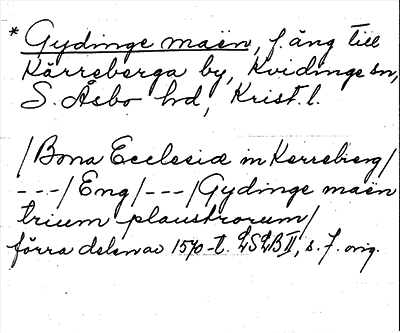 * Gydinge maën, f. äng till
Kärreberga by, Kvidinge sn,
S. Åsbo hd, Krist. l.
/Bona Ecclesiæ in Kerreberg/
---/Eng/---/Gydinge maën
trium plaustrorum/
förra delen av 1570-t. LSLB II, s. 7. orig.